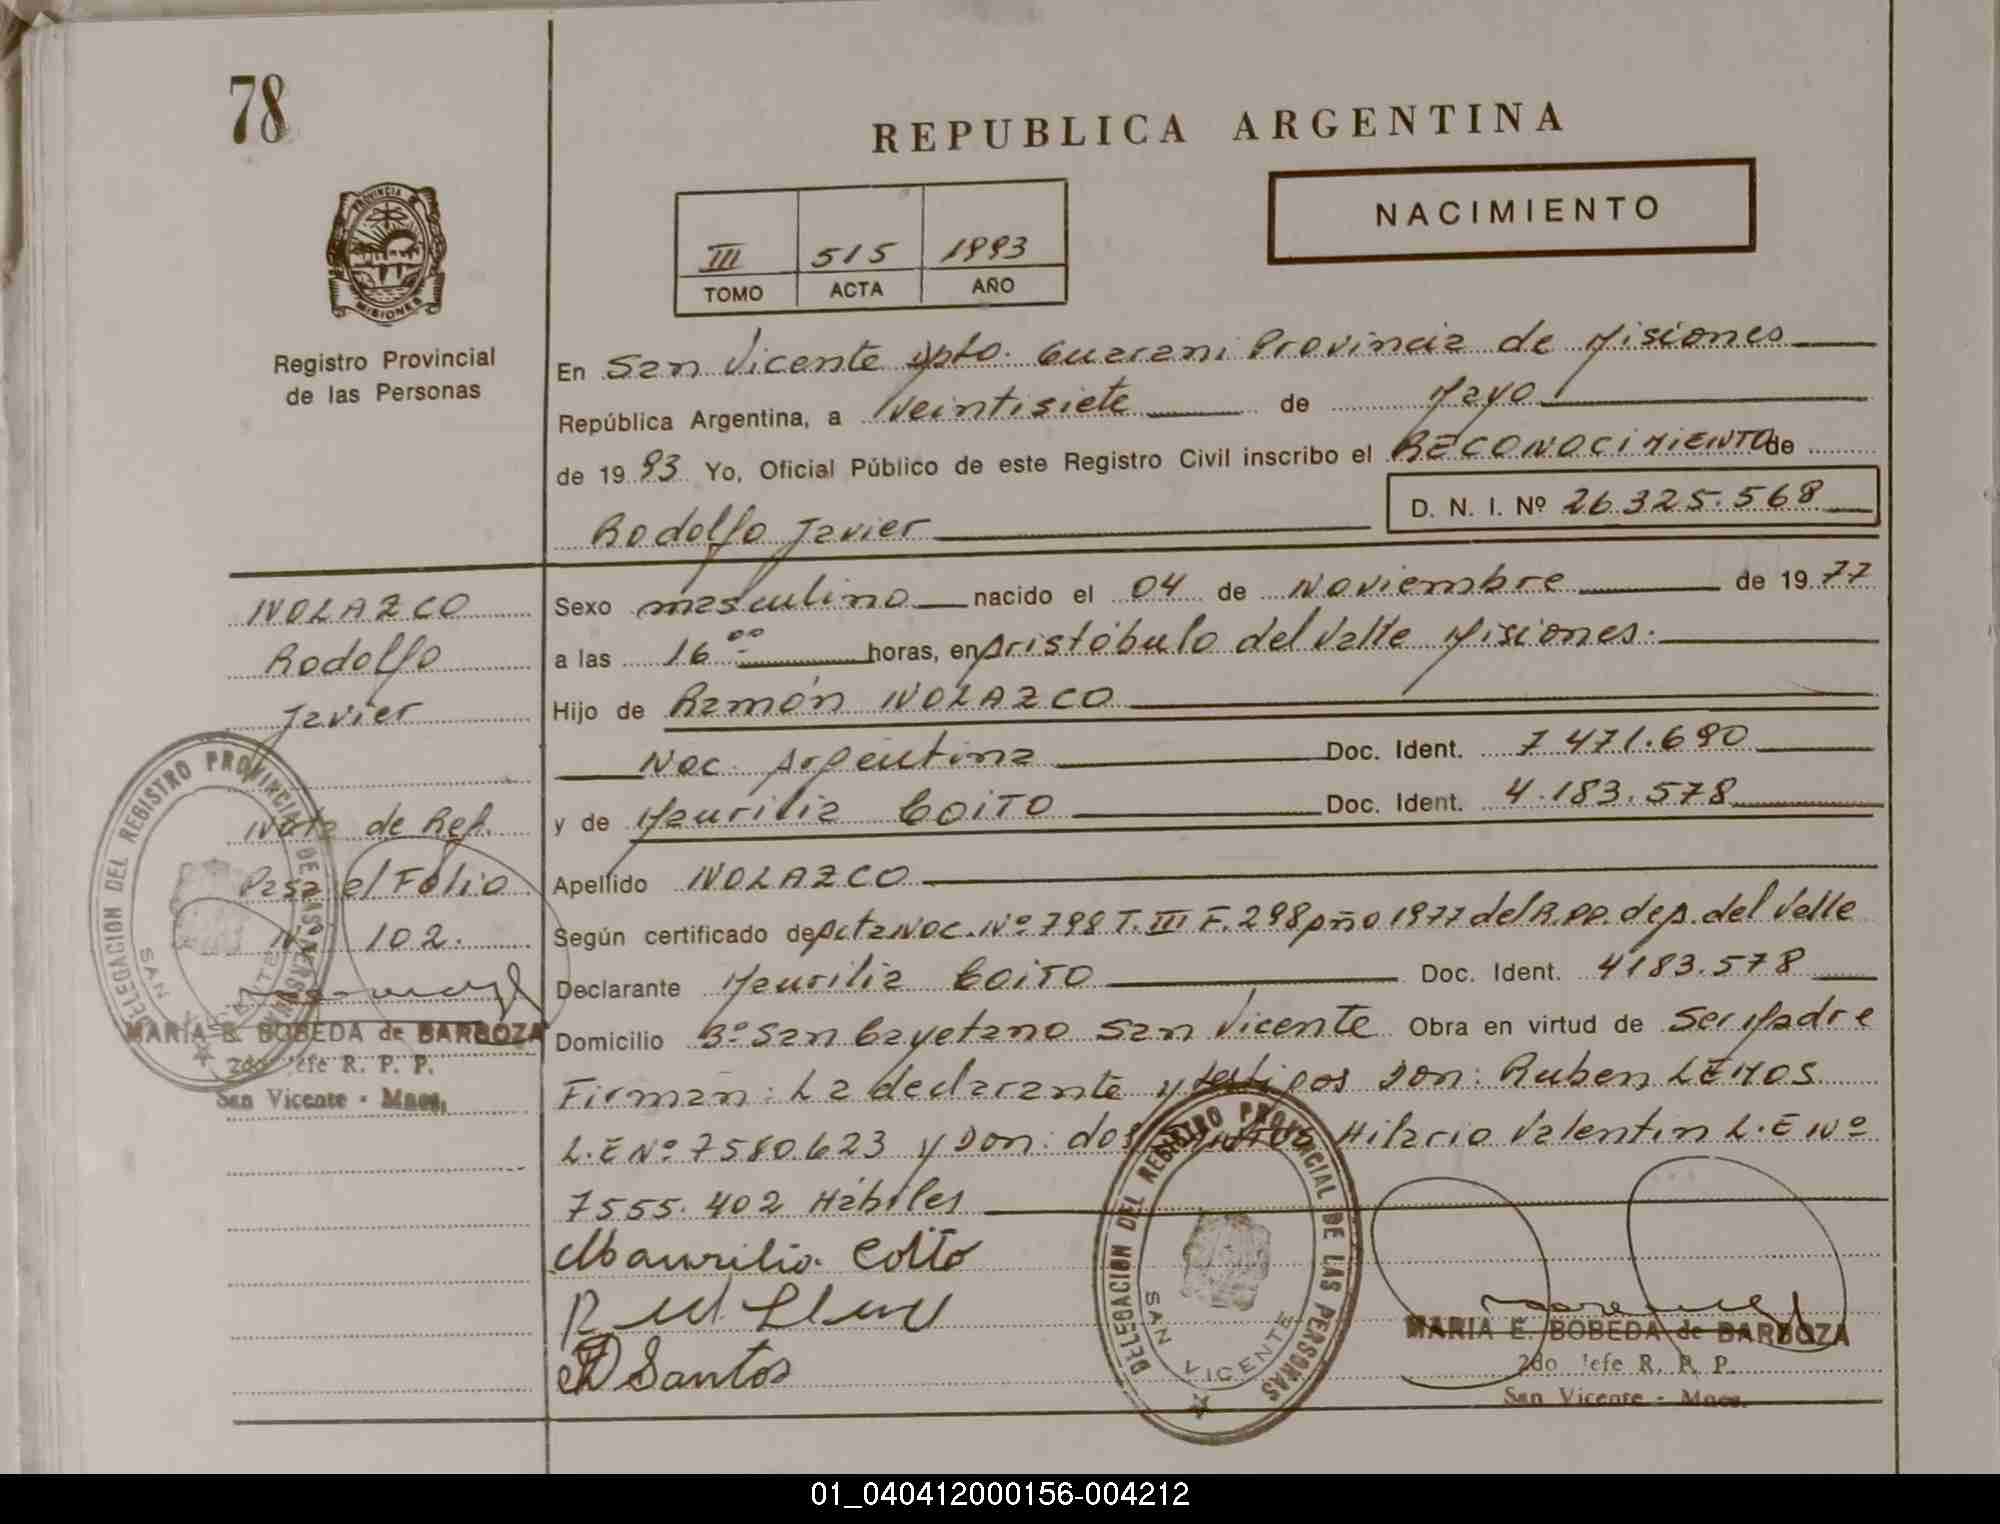 78
REPUBLICA ARGENTINA
NACIMIENTO
III 515 1993
TOMO ACTA AÑO
PROVINCIA DE
MISIONES
Registro Provincial
de las Personas
En San Vicente Dpto. Guarani Provincia de Misiones
República Argentina, a Veintisiete de Mayo
de 1993 Yo, Oficial Público de este Registro Civil inscribo el RECONOCIMIENTO de
Rodolfo Javier D. N. I. Nº 26.325.568
NOLAZCO
Rodolfo
Javier
Nota de Ref.
Pasa el Folio
Nº 102.
MARIA E. BOBEDA de BARBOZA
2do Jefe R. P. P.
San Vicente - Mnes.
DELEGACION DEL REGISTRO PROVINCIAL DE LAS PERSONAS
SAN VICENTE
Sexo masculino nacido el 04 de Noviembre de 1977
a las 16 00 horas, en Aristóbulo del Valle Misiones.
Hijo de Ramón NOLAZCO
Nac. Argentina Doc. Ident. 7471.690
y de Maurilia COITO Doc. Ident. 4.183.578
Apellido NOLAZCO
Según certificado de Acta Nac. Nº 798 T. III F. 298 Año 1977 del R.PP. de A. del Valle
Declarante Maurilia COITO Doc. Ident. 4183.578
Domicilio Bº San Cayetano San Vicente Obra en virtud de Ser Madre
Firman: La declarante y testigos Don: Ruben LEMOS
L.E Nº 7580.623 y Don: dos Santos Hilario Valentin L.E Nº
7555.402 Hábiles
Maurilia Coito
Santos
DELEGACION DEL REGISTRO PROVINCIAL DE LAS PERSONAS
SAN VICENTE
MARIA E. BOBEDA de BARBOZA
2do Jefe R. P. P.
San Vicente - Mnes.
01_040412000156-004212